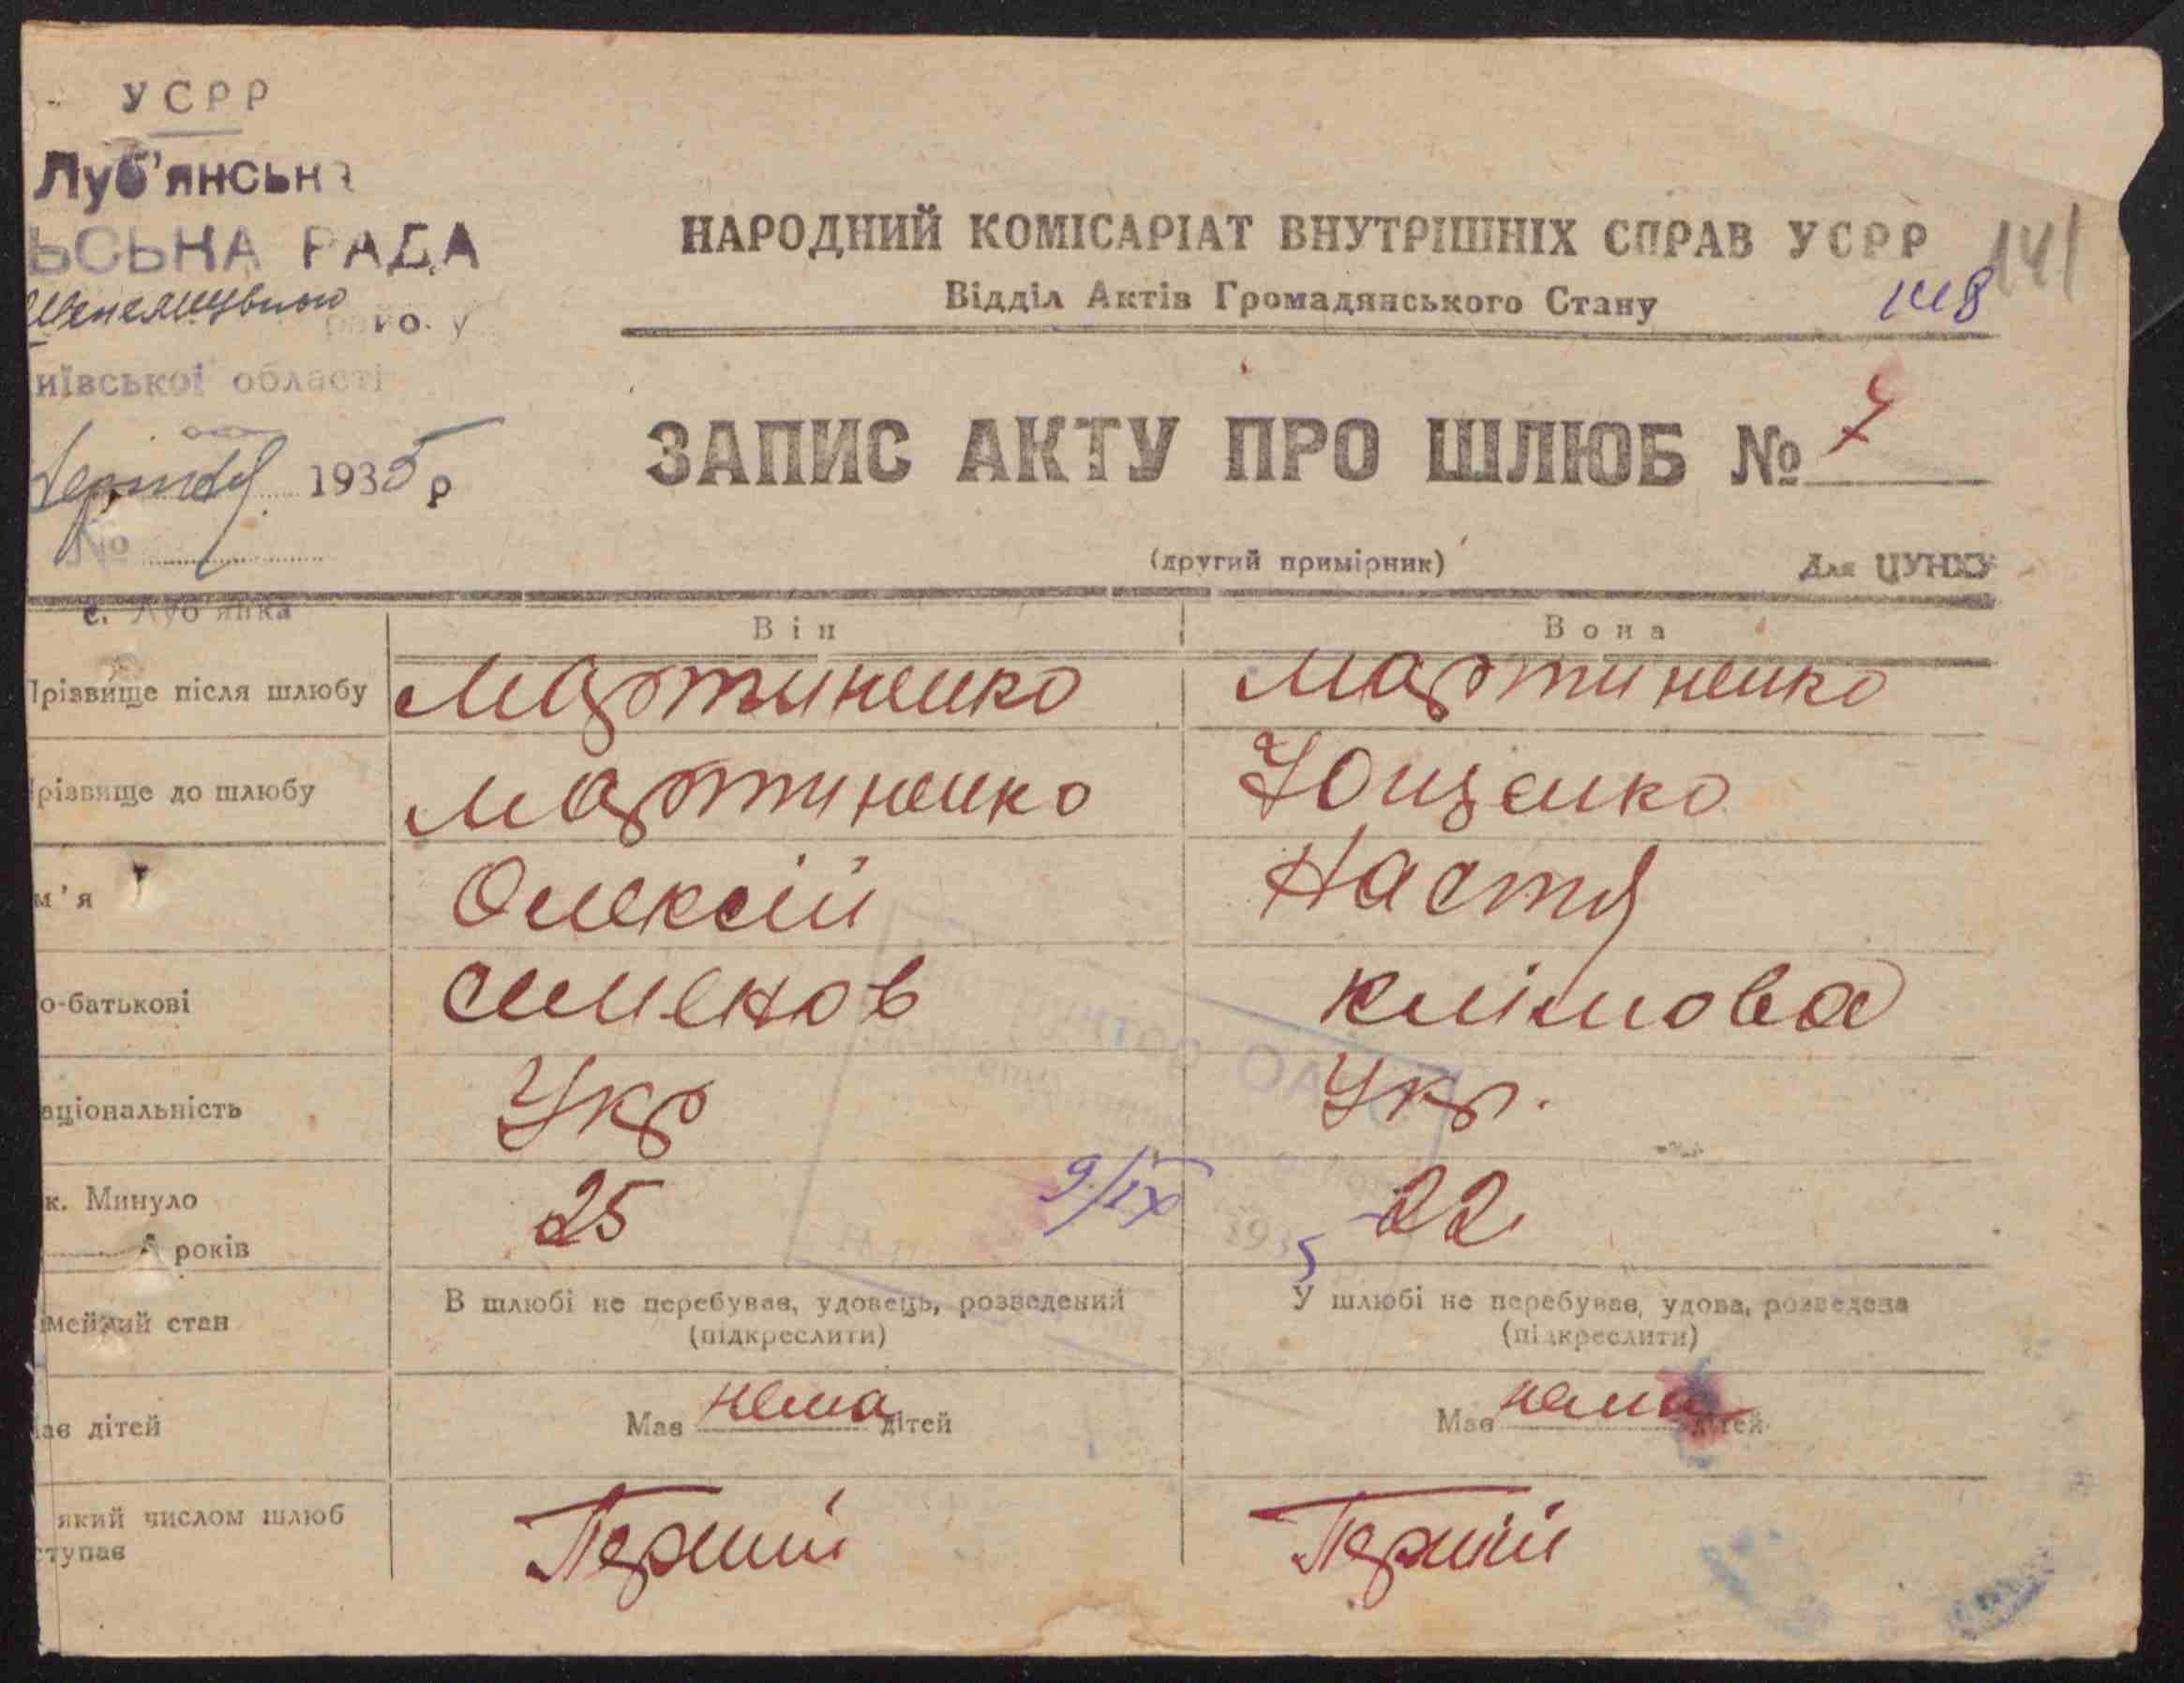 УСРР
Луб'янська
ЬСЬКА РАДА
ївської області
1935 р
№
с. Луб'янка
НАРОДНИЙ КОМІСАРІАТ ВНУТРІШНІХ СПРАВ УСРР
141
Відділ Актів Громадянського Стану
148
ЗАПИС АКТУ ПРО ШЛЮБ № 7
(другий примірник)
Для ЦУНХУ
Він Вона
Прізвище після шлюбу Мартиненко Мартиненко
різвище до шлюбу Мартиненко Ющенко
м'я Олексій Настя
о-батькові Семенов Клімова
аціональність Укр Укр.
к. Минуло
років 25 22
9/IX 1935
імейний стан В шлюбі не перебував, удовець, розведений У шлюбі не перебував, удова, розведена
(підкреслити) (підкреслити)
ає дітей Має нема дітей Має нема дітей
який числом шлюб
ступає Перший Перший